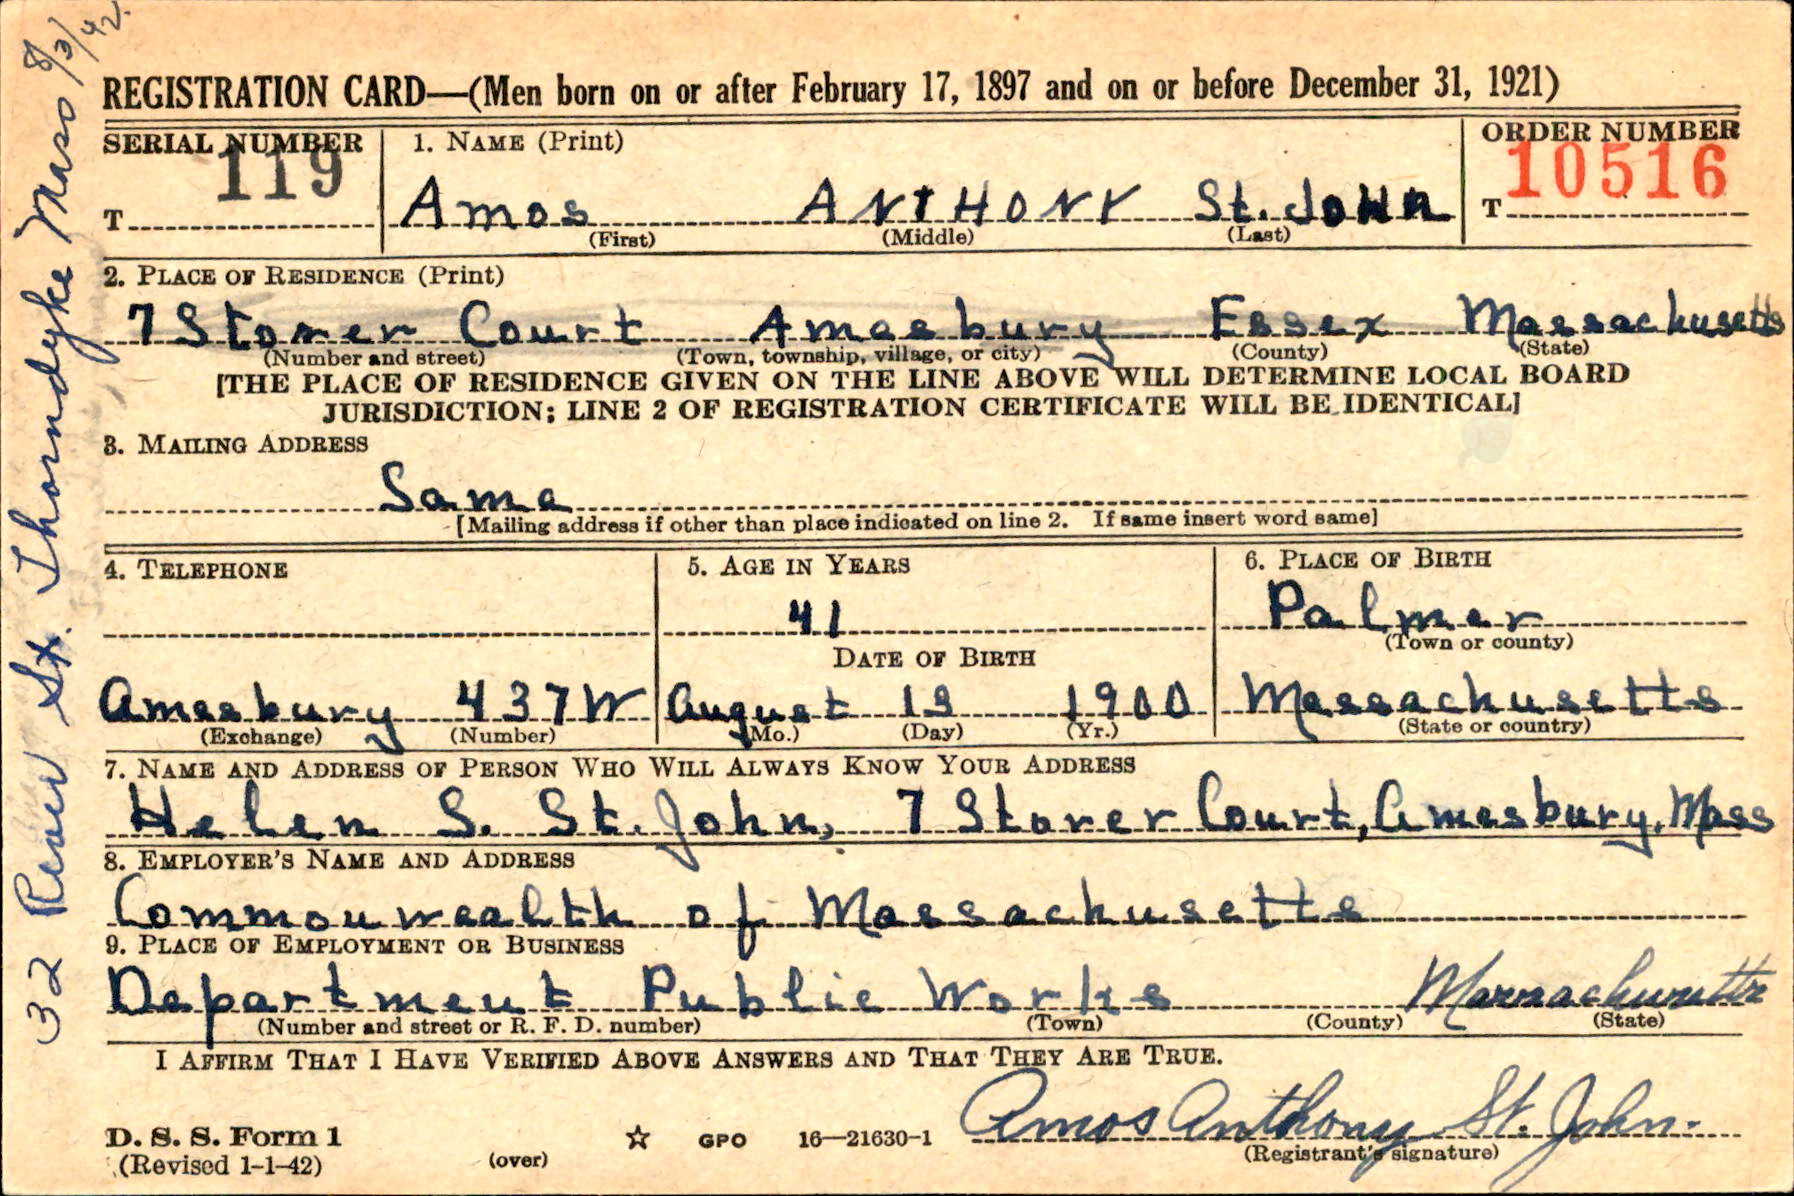 32 River St. Thorndyke Mass 8/3/42.
REGISTRATION CARD—(Men born on or after February 17, 1897 and on or before December 31, 1921)
SERIAL NUMBER 1. NAME (Print) ORDER NUMBER
119 10516
T Amos ANTHONY St. JOHN T
(First) (Middle) (Last)
2. PLACE OF RESIDENCE (Print)
7 Storer Court Amesbury Essex Massachusetts
(Number and street) (Town, township, village, or city) (County) (State)
[THE PLACE OF RESIDENCE GIVEN ON THE LINE ABOVE WILL DETERMINE LOCAL BOARD
JURISDICTION; LINE 2 OF REGISTRATION CERTIFICATE WILL BE IDENTICAL]
3. MAILING ADDRESS
Same
[Mailing address if other than place indicated on line 2. If same insert word same]
4. TELEPHONE 5. AGE IN YEARS 6. PLACE OF BIRTH
41 Palmer
(Town or county)
DATE OF BIRTH
Amesbury 437W August 13 1900 Massachusetts
(Exchange) (Number) (Mo.) (Day) (Yr.) (State or country)
7. NAME AND ADDRESS OF PERSON WHO WILL ALWAYS KNOW YOUR ADDRESS
Helen S. St. John, 7 Storer Court, Amesbury, Mass
8. EMPLOYER'S NAME AND ADDRESS
Commonwealth of Massachusetts
9. PLACE OF EMPLOYMENT OR BUSINESS
Department Public Works Massachusetts
(Number and street or R. F. D. number) (Town) (County) (State)
I AFFIRM THAT I HAVE VERIFIED ABOVE ANSWERS AND THAT THEY ARE TRUE.
D. S. S. Form 1 ☆ GPO 16—21630-1 Amos Anthony St. John.
(Revised 1-1-42) (over) (Registrant's signature)